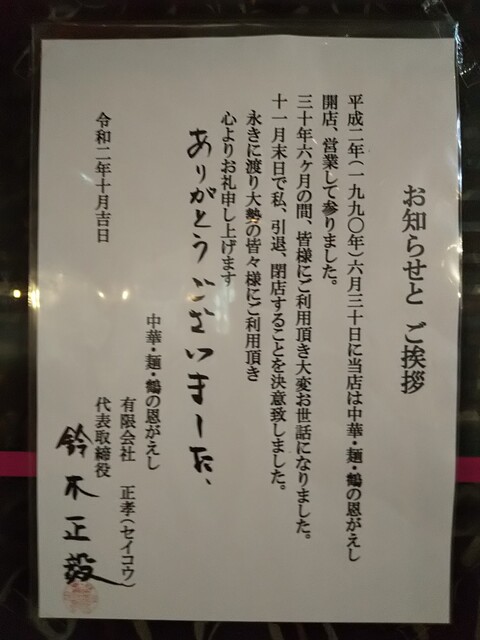 お知らせと ご挨拶
平成二年(一九九〇年)六月三十日に当店は中華・麺・鶴の恩がえし
開店、営業して参りました。
三十年六ヶ月の間、皆様にご利用頂き大変お世話になりました。
十一月末日で私、引退、閉店することを決意致しました。
永きに渡り大勢の皆々様にご利用頂き
心よりお礼申し上げます
ありがとうございました、
令和二年十月吉日
中華・麺・鶴の恩がえし
有限会社 正孝(セイコウ)
代表取締役
鈴木正毅